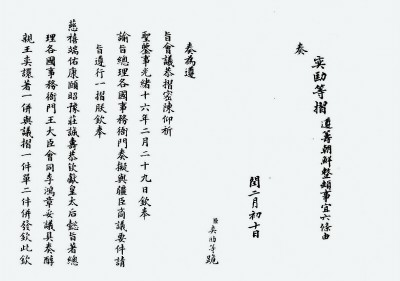 奏
奕劻等摺 遵籌朝鮮整頓事宜六條由
閏二月初十日
臣奕劻等跪
奏為遵
旨會議恭摺密陳仰祈
聖鑒事光緒十六年二月二十九日欽奉
諭旨總理各國事務衙門奏擬與疆臣商議要件請
旨遵行一摺朕欽奉
慈禧端佑康頤昭豫莊誠壽恭欽獻皇太后懿旨著總
理各國事務衙門王大臣會同李鴻章妥議具奏醇
親王奕譞著一併與議摺一件單二件併發欽此欽